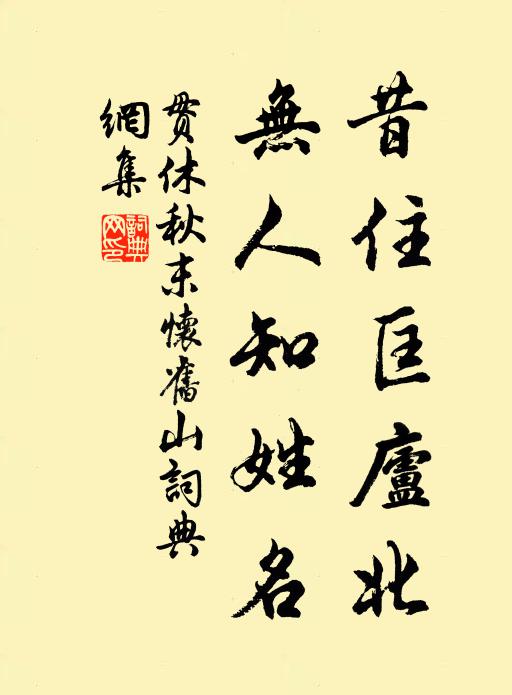 昔住匡廬北
無人知姓名
貫休秋末懷舊山詞典
網集
詞典
网印